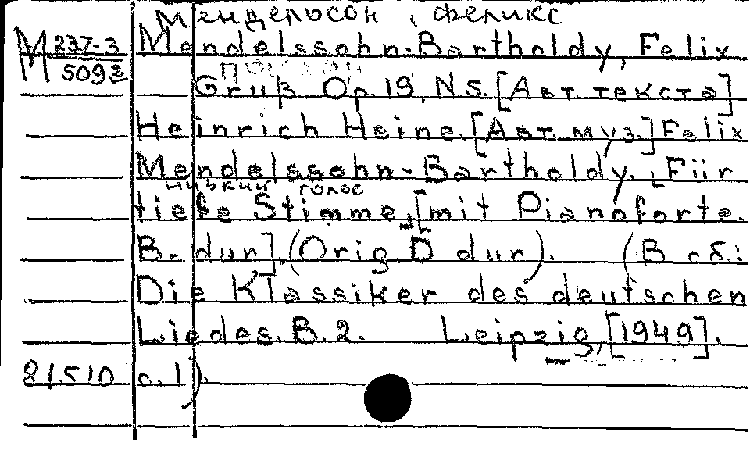 Мендельсон, Феликс
М 237-3 Mendelssohn-Bartholdy, Felix
М 5093
Gruß Op 19, N5. [Авт. текста]
Heinrich Heine. [Авт. муз.] Felix
Mendelssohn-Bartholdy. Für
низкий голос
tiefe Stimme, [mit Pianoforte.
B-dur]. (Orig D dur). (В сб.:
Die Klassiker des deutschen
Liedes. B. 2. Leipzig, [1949].
81.510 c. 1).